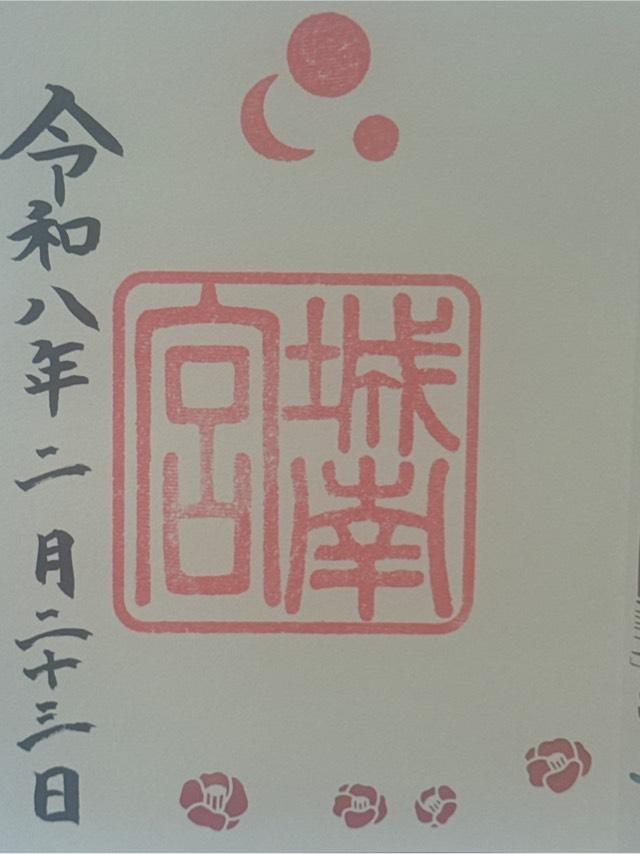 城南
宮
令和八年二月二十三日